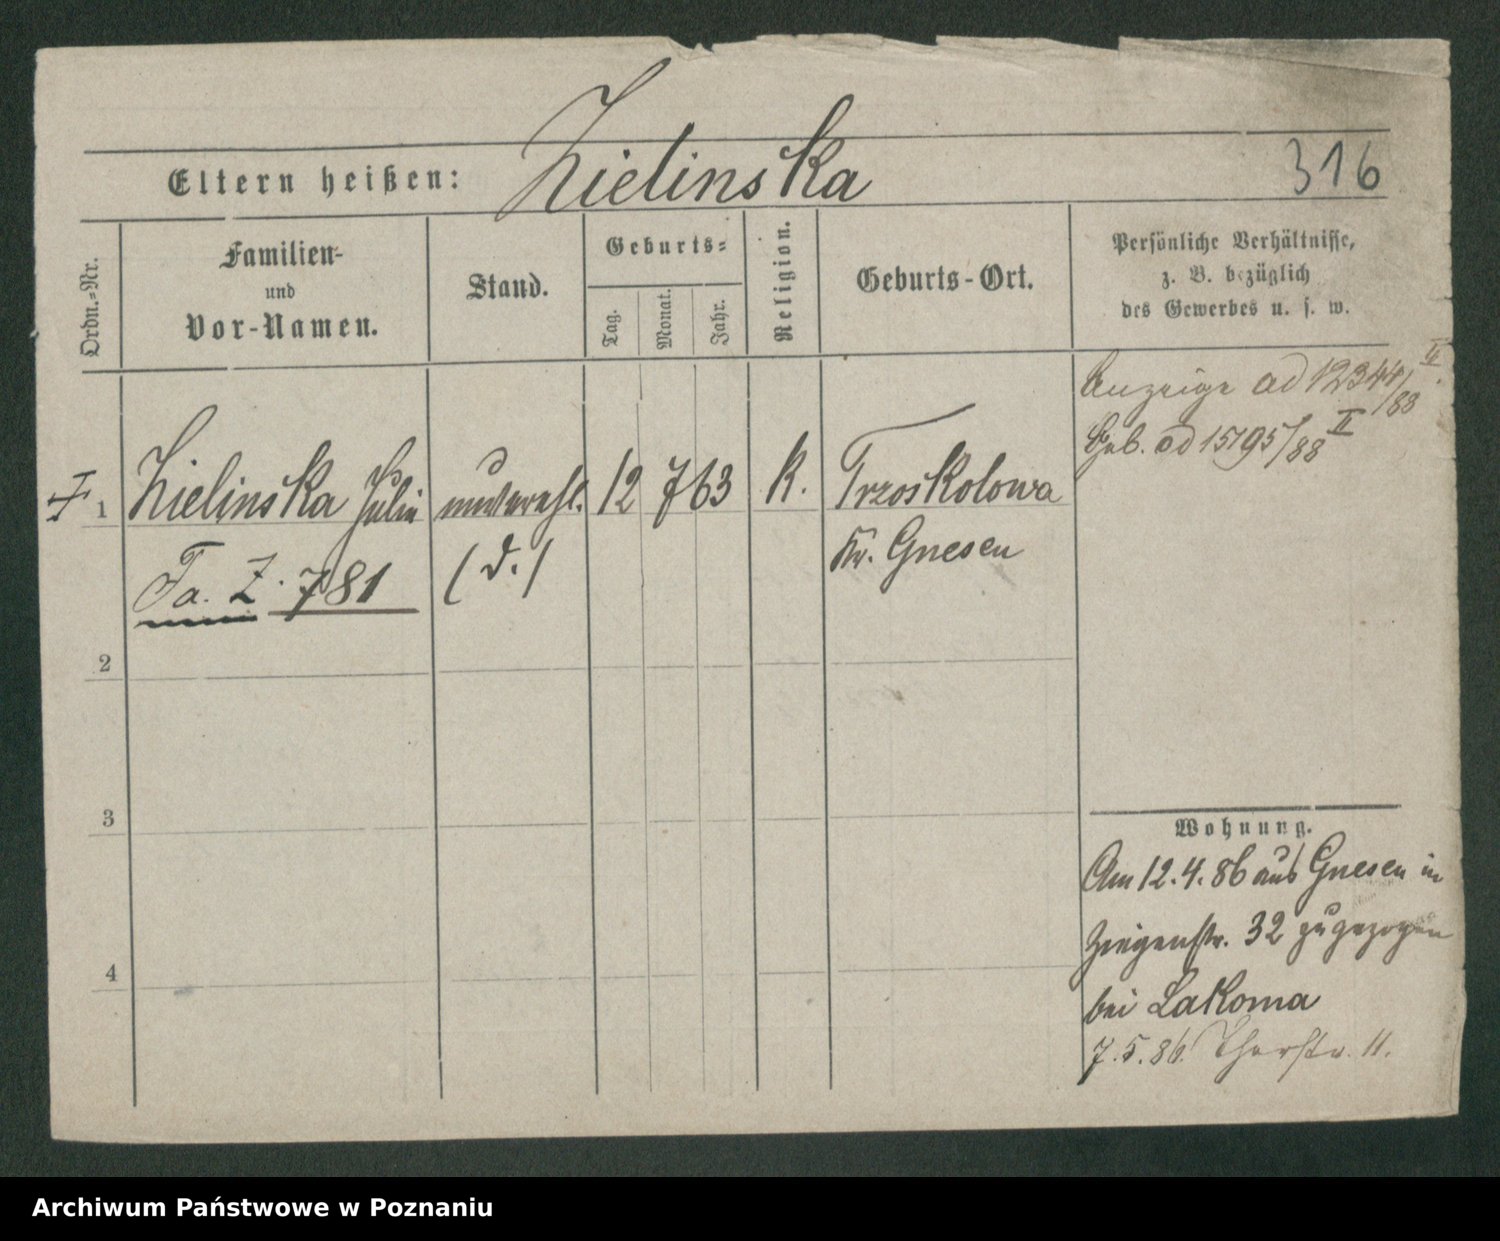 Eltern heißen: Zielinska 316
Ordn.-Nr.
Familien-
und
Vor-Namen.
Stand.
Geburts-
Tag.
Monat.
Jahr.
Religion.
Geburts-Ort.
Persönliche Verhältnisse,
z. B. bezüglich
des Gewerbes u. s. w.
Anzeige ad 12344/88 II.
Geb. ad 15195/88 II
1 Zielinska Julie unverehl. 12 7 63 K. Trzoskolowa
Fa. Z. 781 (d.) Kr. Gnesen
2
3
4
Wohnung.
Am 12.4.86 aus Gnesen in
Ziegenstr. 32 zugezogen
bei Lakoma
7.5.86. Thorstr. 11.
Archiwum Państwowe w Poznaniu